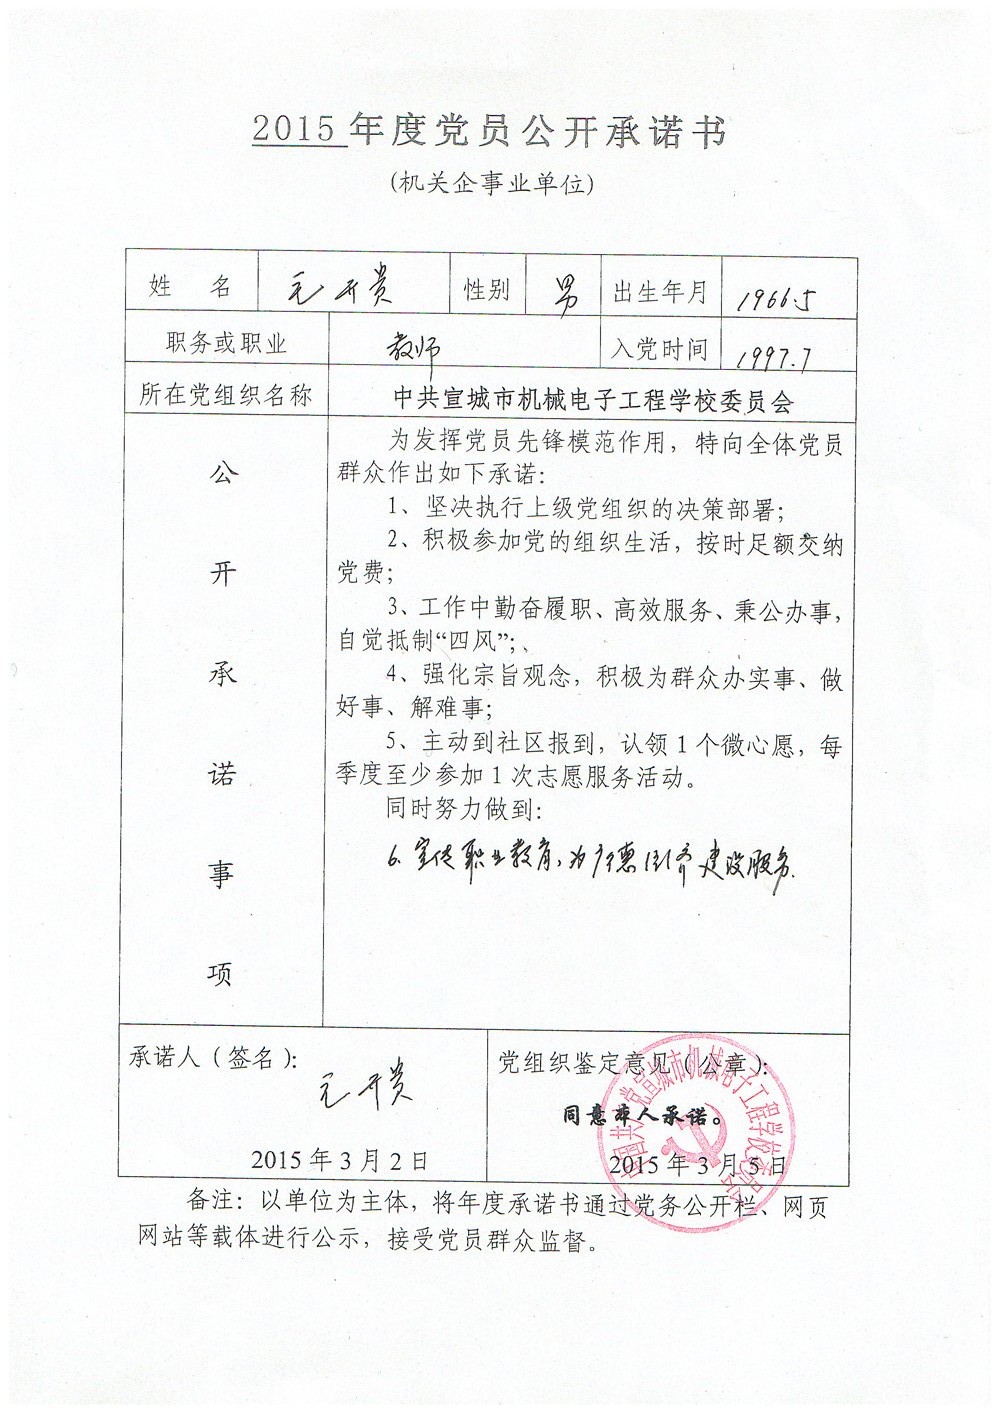 2015 年度党员公开承诺书
(机关企事业单位)
姓 名 开贵 性别 男 出生年月 1966.5
职务或职业 教师 入党时间 1997.7
所在党组织名称 中共宣城市机械电子工程学校委员会
公开承诺事项
为发挥党员先锋模范作用，特向全体党员
群众作出如下承诺：
1、坚决执行上级党组织的决策部署；
2、积极参加党的组织生活，按时足额交纳
党费；
3、工作中勤奋履职、高效服务、秉公办事，
自觉抵制“四风”；、
4、强化宗旨观念，积极为群众办实事、做
好事、解难事；
5、主动到社区报到，认领 1 个微心愿，每
季度至少参加 1 次志愿服务活动。
同时努力做到：
6. 宣传职业教育，为广德经济建设服务.
承诺人（签名）：
开贵
2015 年 3 月 2 日
党组织鉴定意见（公章）：
同意本人承诺。
2015 年 3 月 5 日
中国共产党宣城市机械电子工程学校委员会
备注：以单位为主体，将年度承诺书通过党务公开栏、网页
网站等载体进行公示，接受党员群众监督。